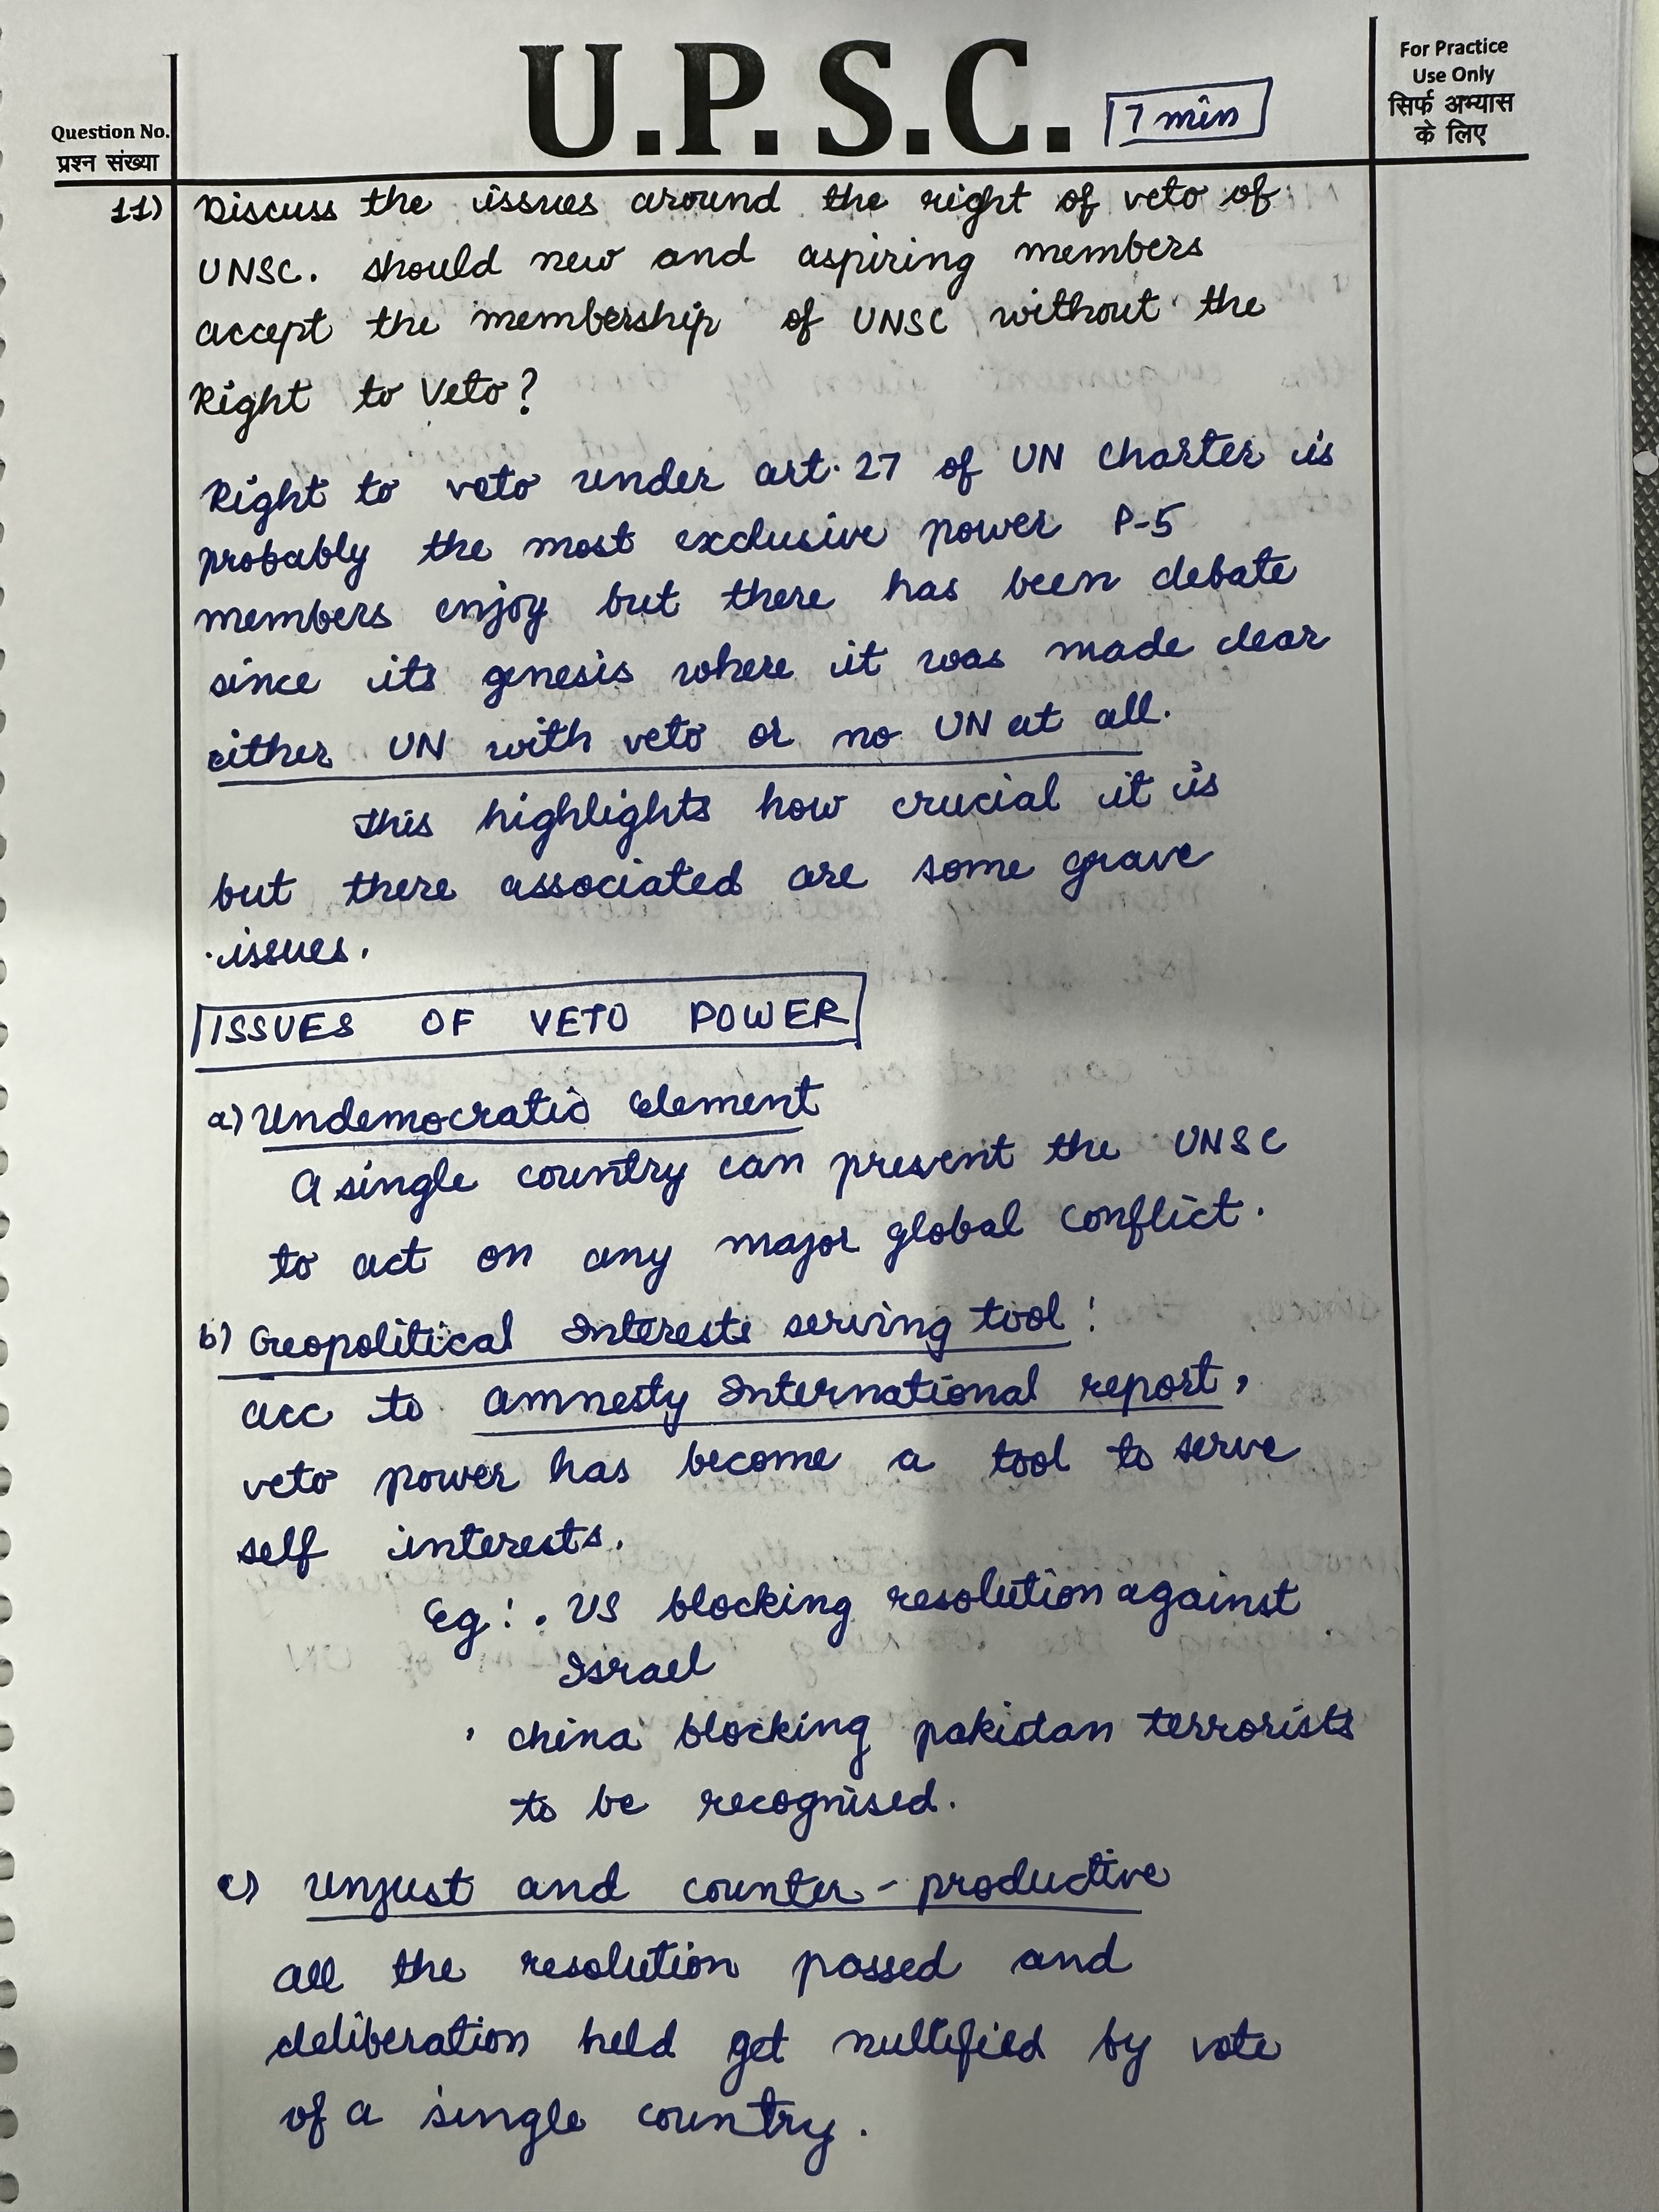 U.P.S.C.
7 min
For Practice
Use Only
सिर्फ अभ्यास
के लिए
Question No.
प्रश्न संख्या
11) Discuss the issues around the right of veto of
UNSC. should new and aspiring members
accept the membership of UNSC without the
Right to Veto?
Right to veto under art. 27 of UN Charter is
probably the most exclusive power P-5
members enjoy but there has been debate
since its genesis where it was made clear
either UN with veto or no UN at all.
This highlights how crucial it is
but there associated are some grave
issues.
ISSUES OF VETO POWER
a) Undemocratic Element
A single country can prevent the UNSC
to act on any major global conflict.
b) Geopolitical Interests serving tool:
acc to Amnesty International report,
veto power has become a tool to serve
self interests.
Eg: • US blocking resolution against
Israel
• china blocking pakistan terrorists
to be recognised.
c) Unjust and counter-productive
all the resolution passed and
deliberation held get nullified by vote
of a single country.